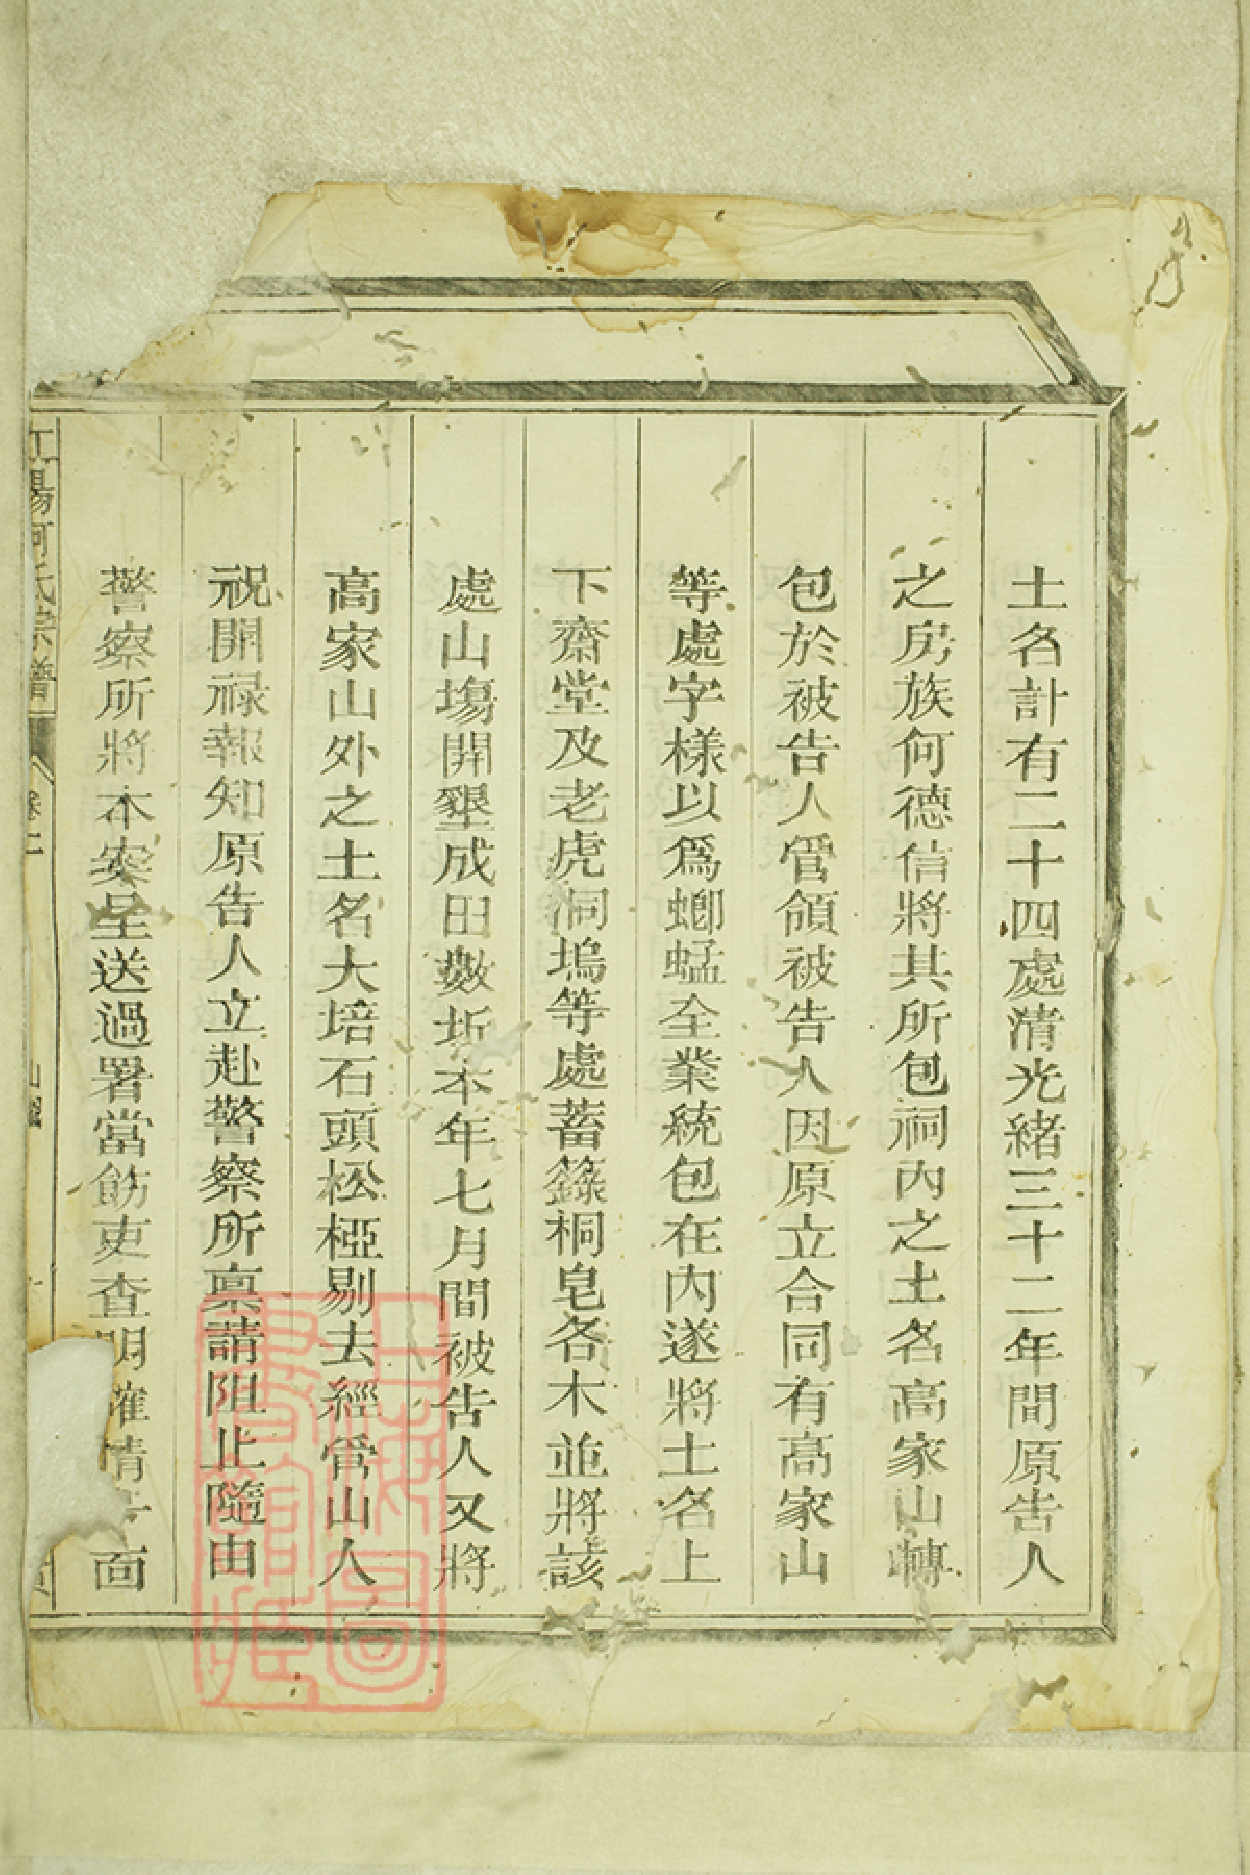 土名計有二十四處清光緒三十二年間原告人
之房族何德信將其所包祠內之土名高家山轉
包於被告人管領被告人因原立合同有高家山
等處字樣以爲蝍蜢全業統包在內遂將土名上
下齋堂及老虎洞塢等處蓄籙桐皂各木並將該
處山塲開墾成田數坵本年七月間被告人又將
高家山外之土名大培石頭松椏剔去經管山人
祝開祿報知原告人立赴警察所禀請阻止隨由
警察所將本案呈送過署當飭吏查明確情 面
陽何氏宗譜
卷二
上海圖書館藏